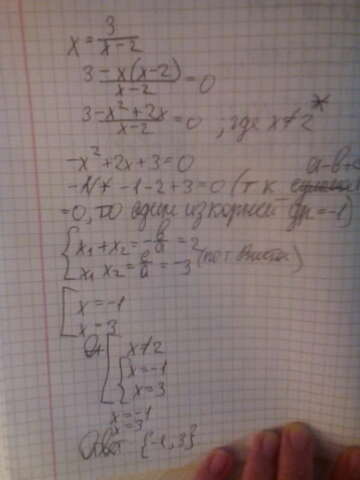 x = 3/(x-2)
(3-x(x-2))/(x-2) = 0
(3-x²+2x)/(x-2) = 0 , где x≠2*
-x²+2x+3=0
-1-2+3=0 (т к
a-b+c
=0, то один из корней ур.=-1)
{ x₁+x₂=-b/a=2
{ x₁x₂=c/a=-3 (по т. Виета)
[ x=-1
[ x=3
[ x≠2
{ x=-1
{ x=3
x=-1
x=3
Ответ {-1,3}